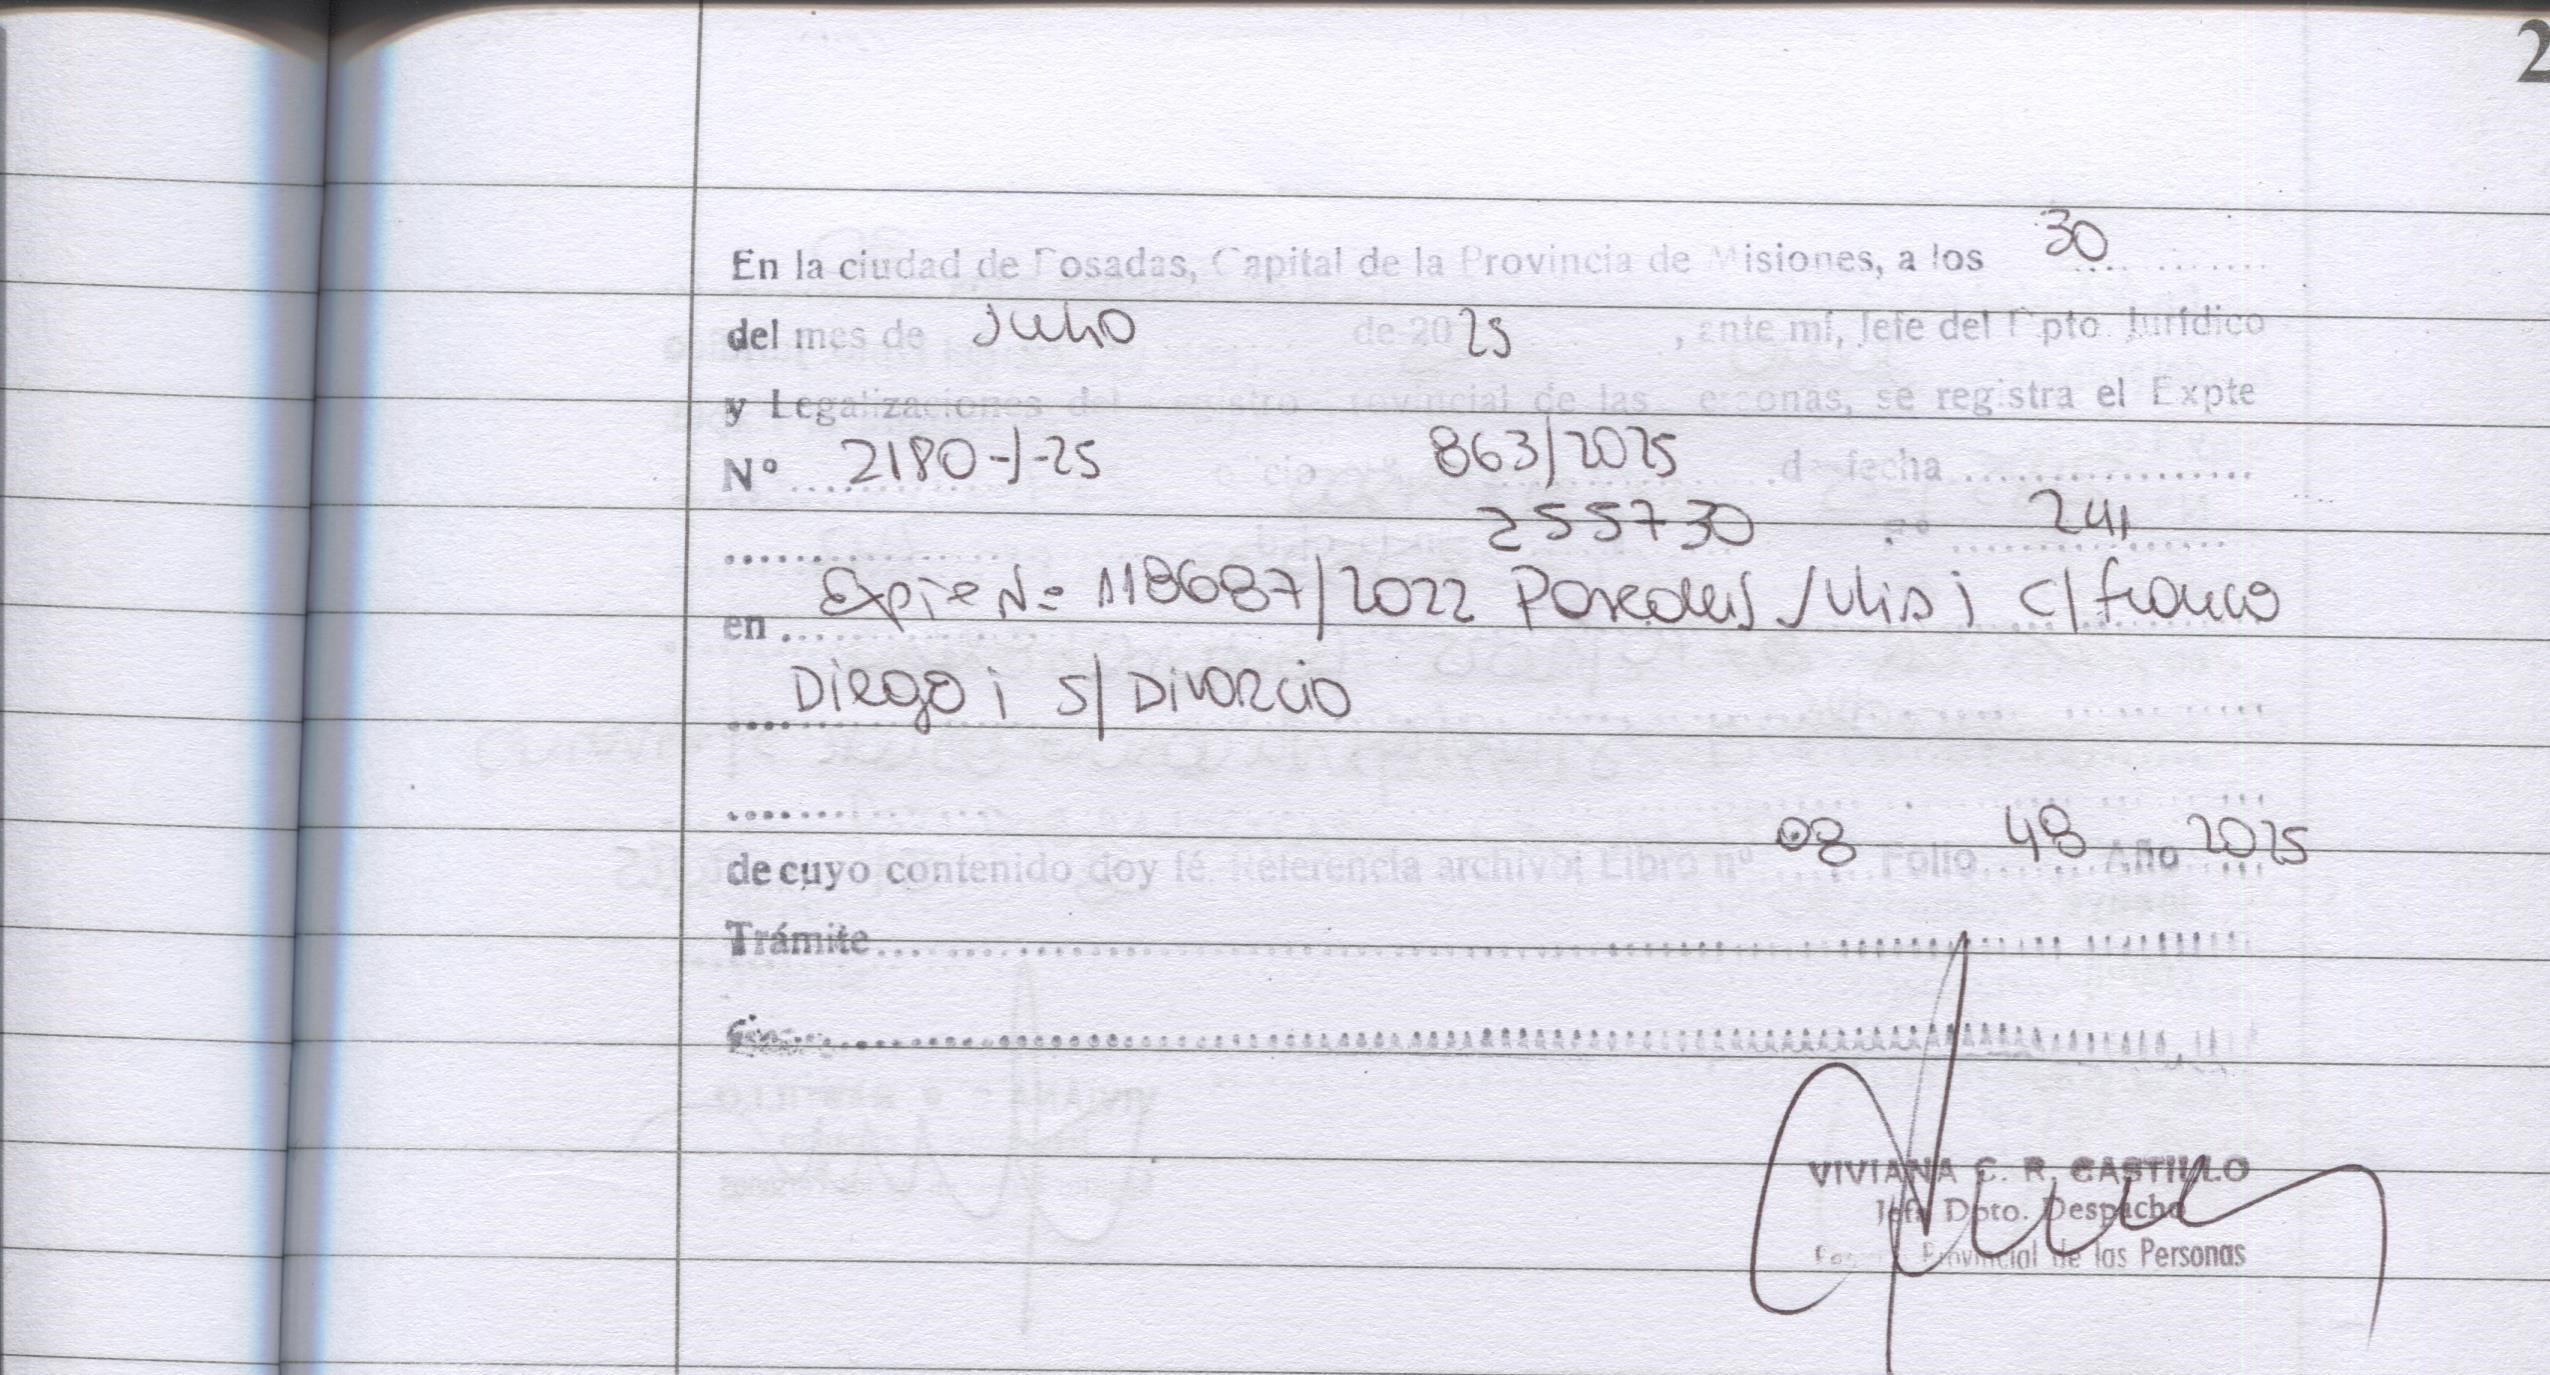 2
En la ciudad de Posadas, Capital de la Provincia de Misiones, a los 30
del mes de Julio de 20 25, ante mí, Jefe del Dpto. Jurídico
y Legalizaciones del Registro Provincial de las Personas, se registra el Expte
Nº 2180-J-25 863/2025 de fecha
255730 nº 241
en Expte Nº 118687/2022 Paredes Julia i c/ Franco
Diego i s/ Divorcio
de cuyo contenido doy fé. Referencia archivo: Libro nº 08 Folio 48 Año 2025
Trámite
VIVIANA C. R. CASTILLO
Jefa Dpto. Despacho
Provincial de las Personas